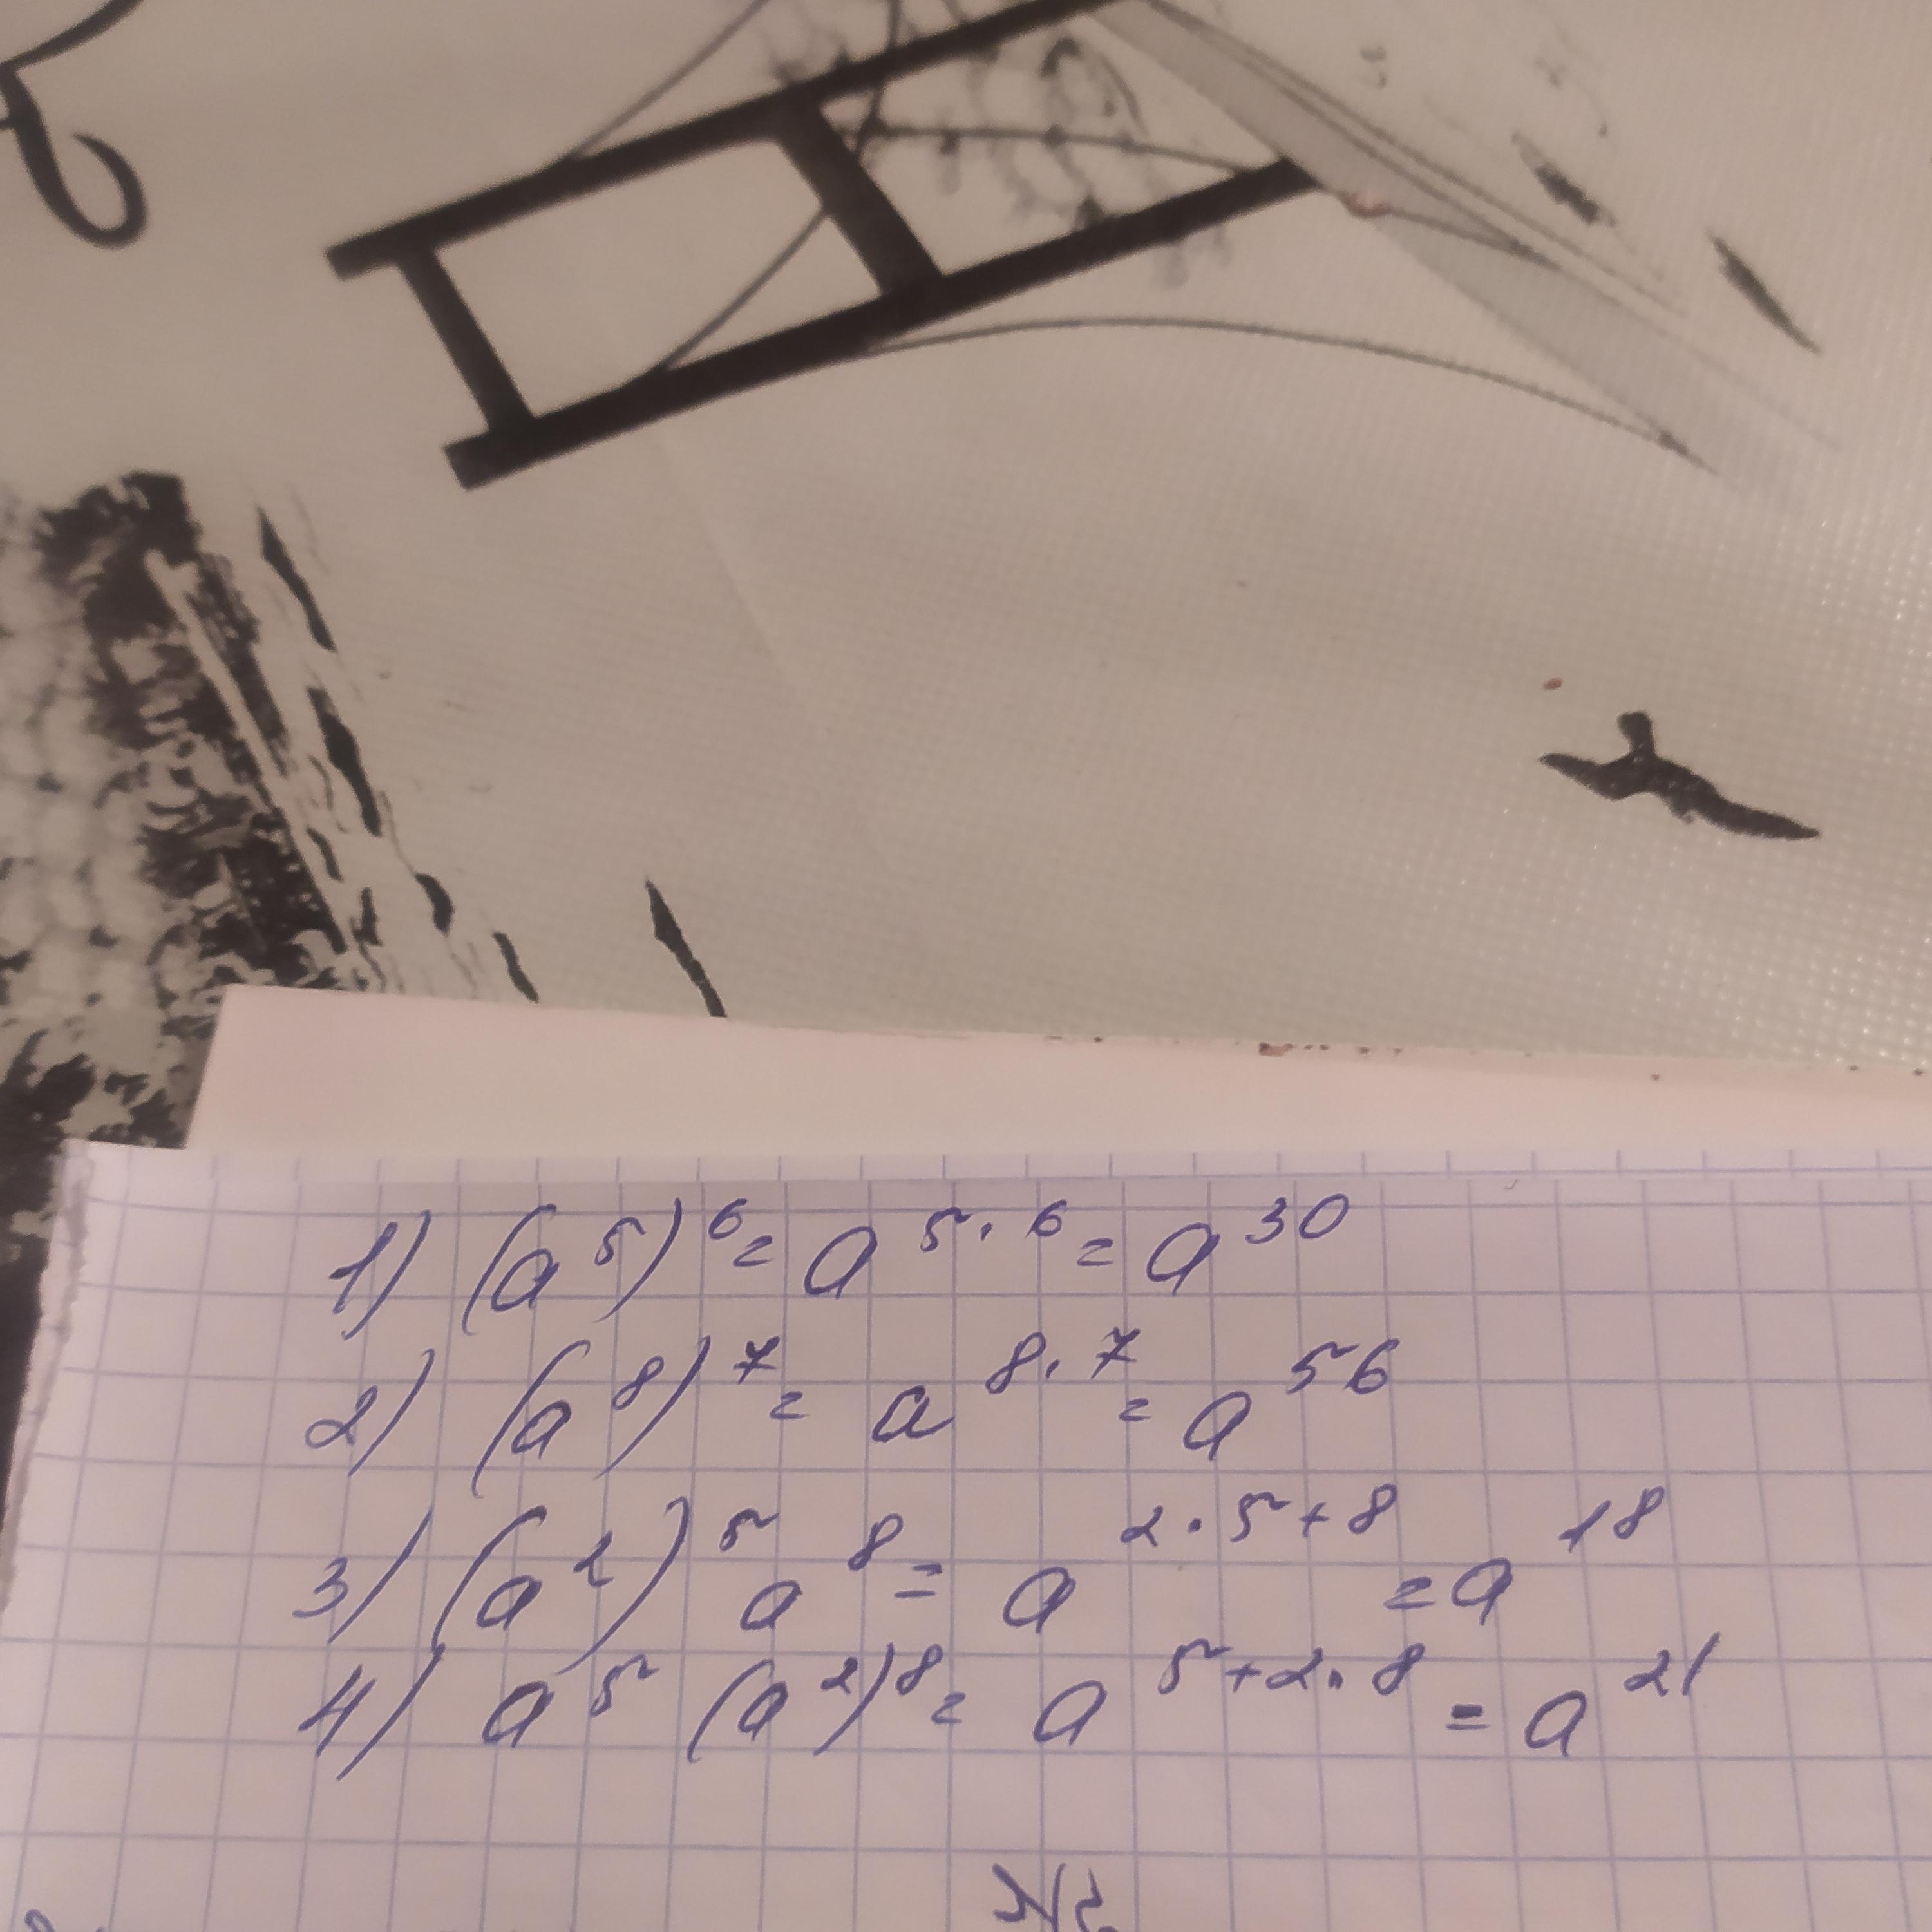 1) (a⁵)⁶ = a⁵·⁶ = a³⁰
2) (a⁸)⁷ = a⁸·⁷ = a⁵⁶
3) (a²)⁵ a⁸ = a²·⁵⁺⁸ = a¹⁸
4) a⁵ (a²)⁸ = a⁵⁺²·⁸ = a²¹